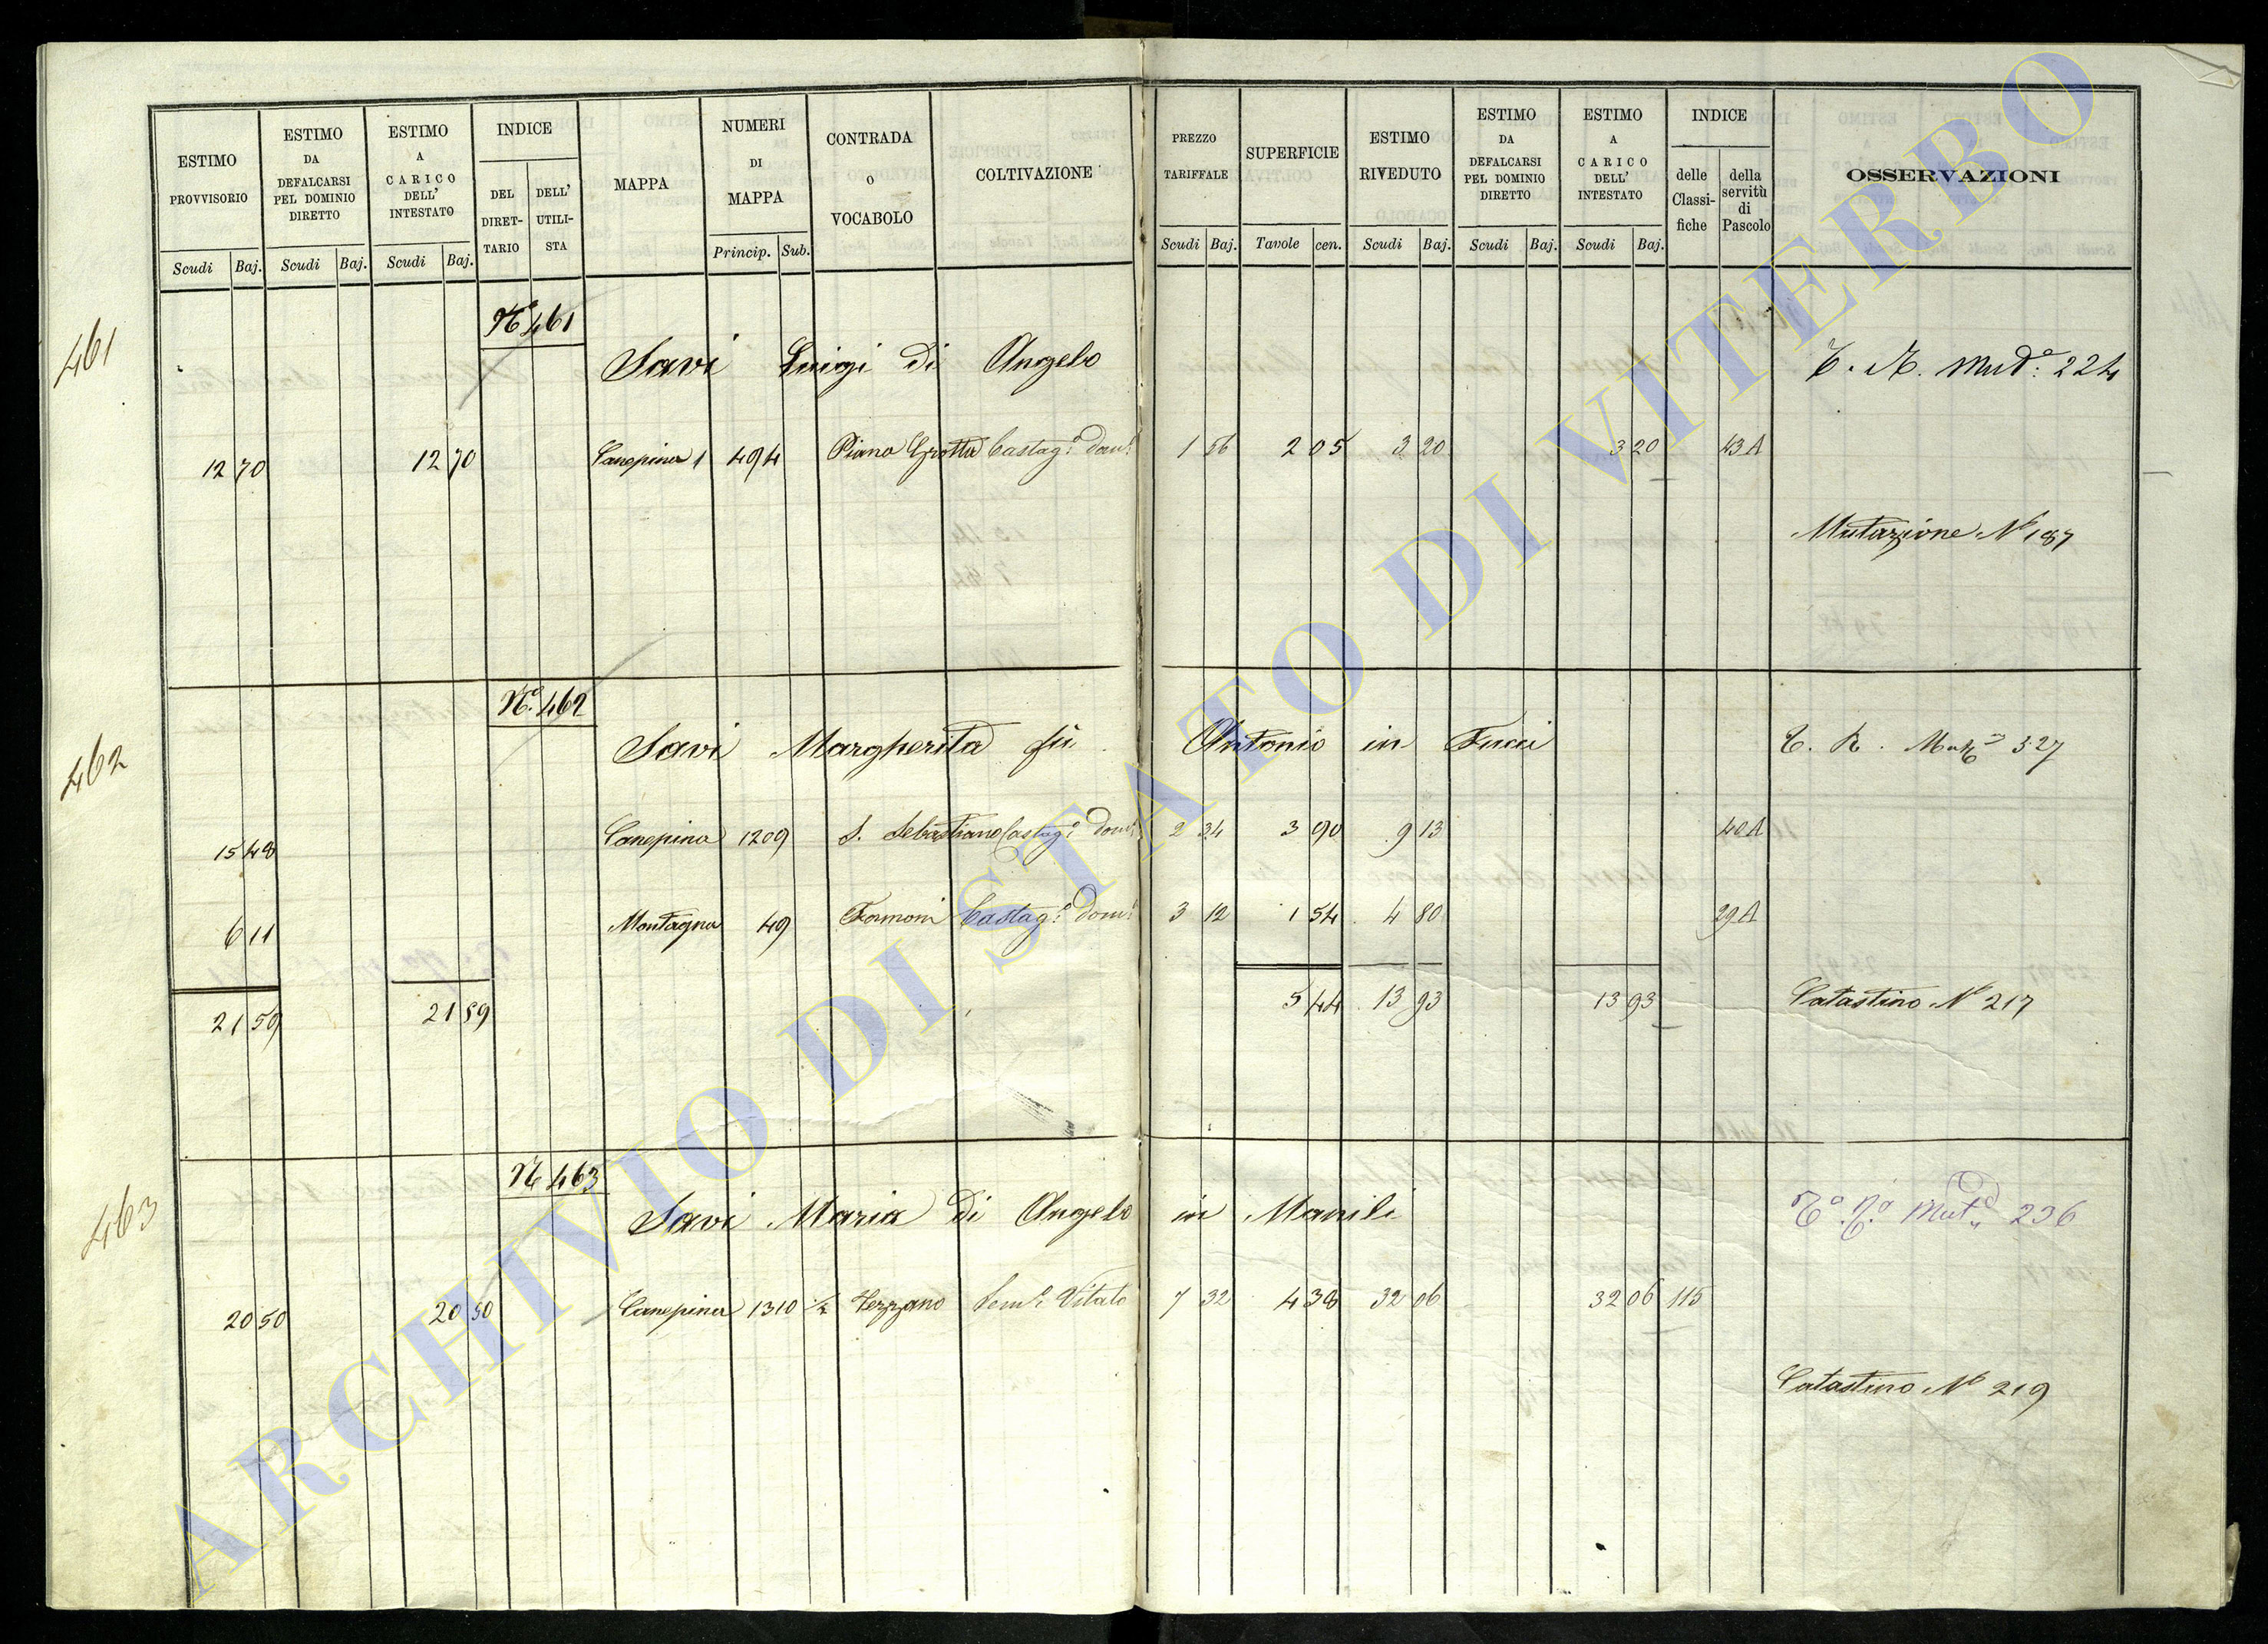 ESTIMO PROVVISORIO
Scudi Baj.
ESTIMO DA DEFALCARSI PEL DOMINIO DIRETTO
Scudi Baj.
ESTIMO A CARICO DELL' INTESTATO
Scudi Baj.
INDICE
DEL DIRET- TARIO
DELL' UTILI- STA
MAPPA
NUMERI DI MAPPA
Princip. Sub.
CONTRADA O VOCABOLO
COLTIVAZIONE
PREZZO TARIFFALE
Scudi Baj.
SUPERFICIE
Tavole cen.
ESTIMO RIVEDUTO
Scudi Baj.
ESTIMO DA DEFALCARSI PEL DOMINIO DIRETTO
Scudi Baj.
ESTIMO A CARICO DELL' INTESTATO
Scudi Baj.
INDICE
delle Classi- fiche
della servitù di Pascolo
OSSERVAZIONI
461
Nº 461
Savi Luigi di Angelo
Mutº: 224
12 70 12 70 Canepina 1 494 Piano Grotta Castagº domº 1 56 2 05 3 20 3 20 43 A
Mutazione Nº 187
462
Nº 462
Savi Margherita fù Antonio in Fucci
327
15 48 Canepina 1209 S. Sebastiano Castagº domº 2 34 3 90 9 13 40 A
6 11 Montagna 49 Formoni Castagº domº 3 12 1 54 4 80 29 A
21 59 21 59 5 44 13 93 13 93
Catastino Nº 217
463
Nº 463
Savi Maria di Angelo in Manili
Mutº 236
20 50 20 50 Canepina 1310 ½ Vezzano Semº Vitato 7 32 4 38 32 06 32 06 115
Catastino Nº 219
ARCHIVIO DI STATO DI VITERBO